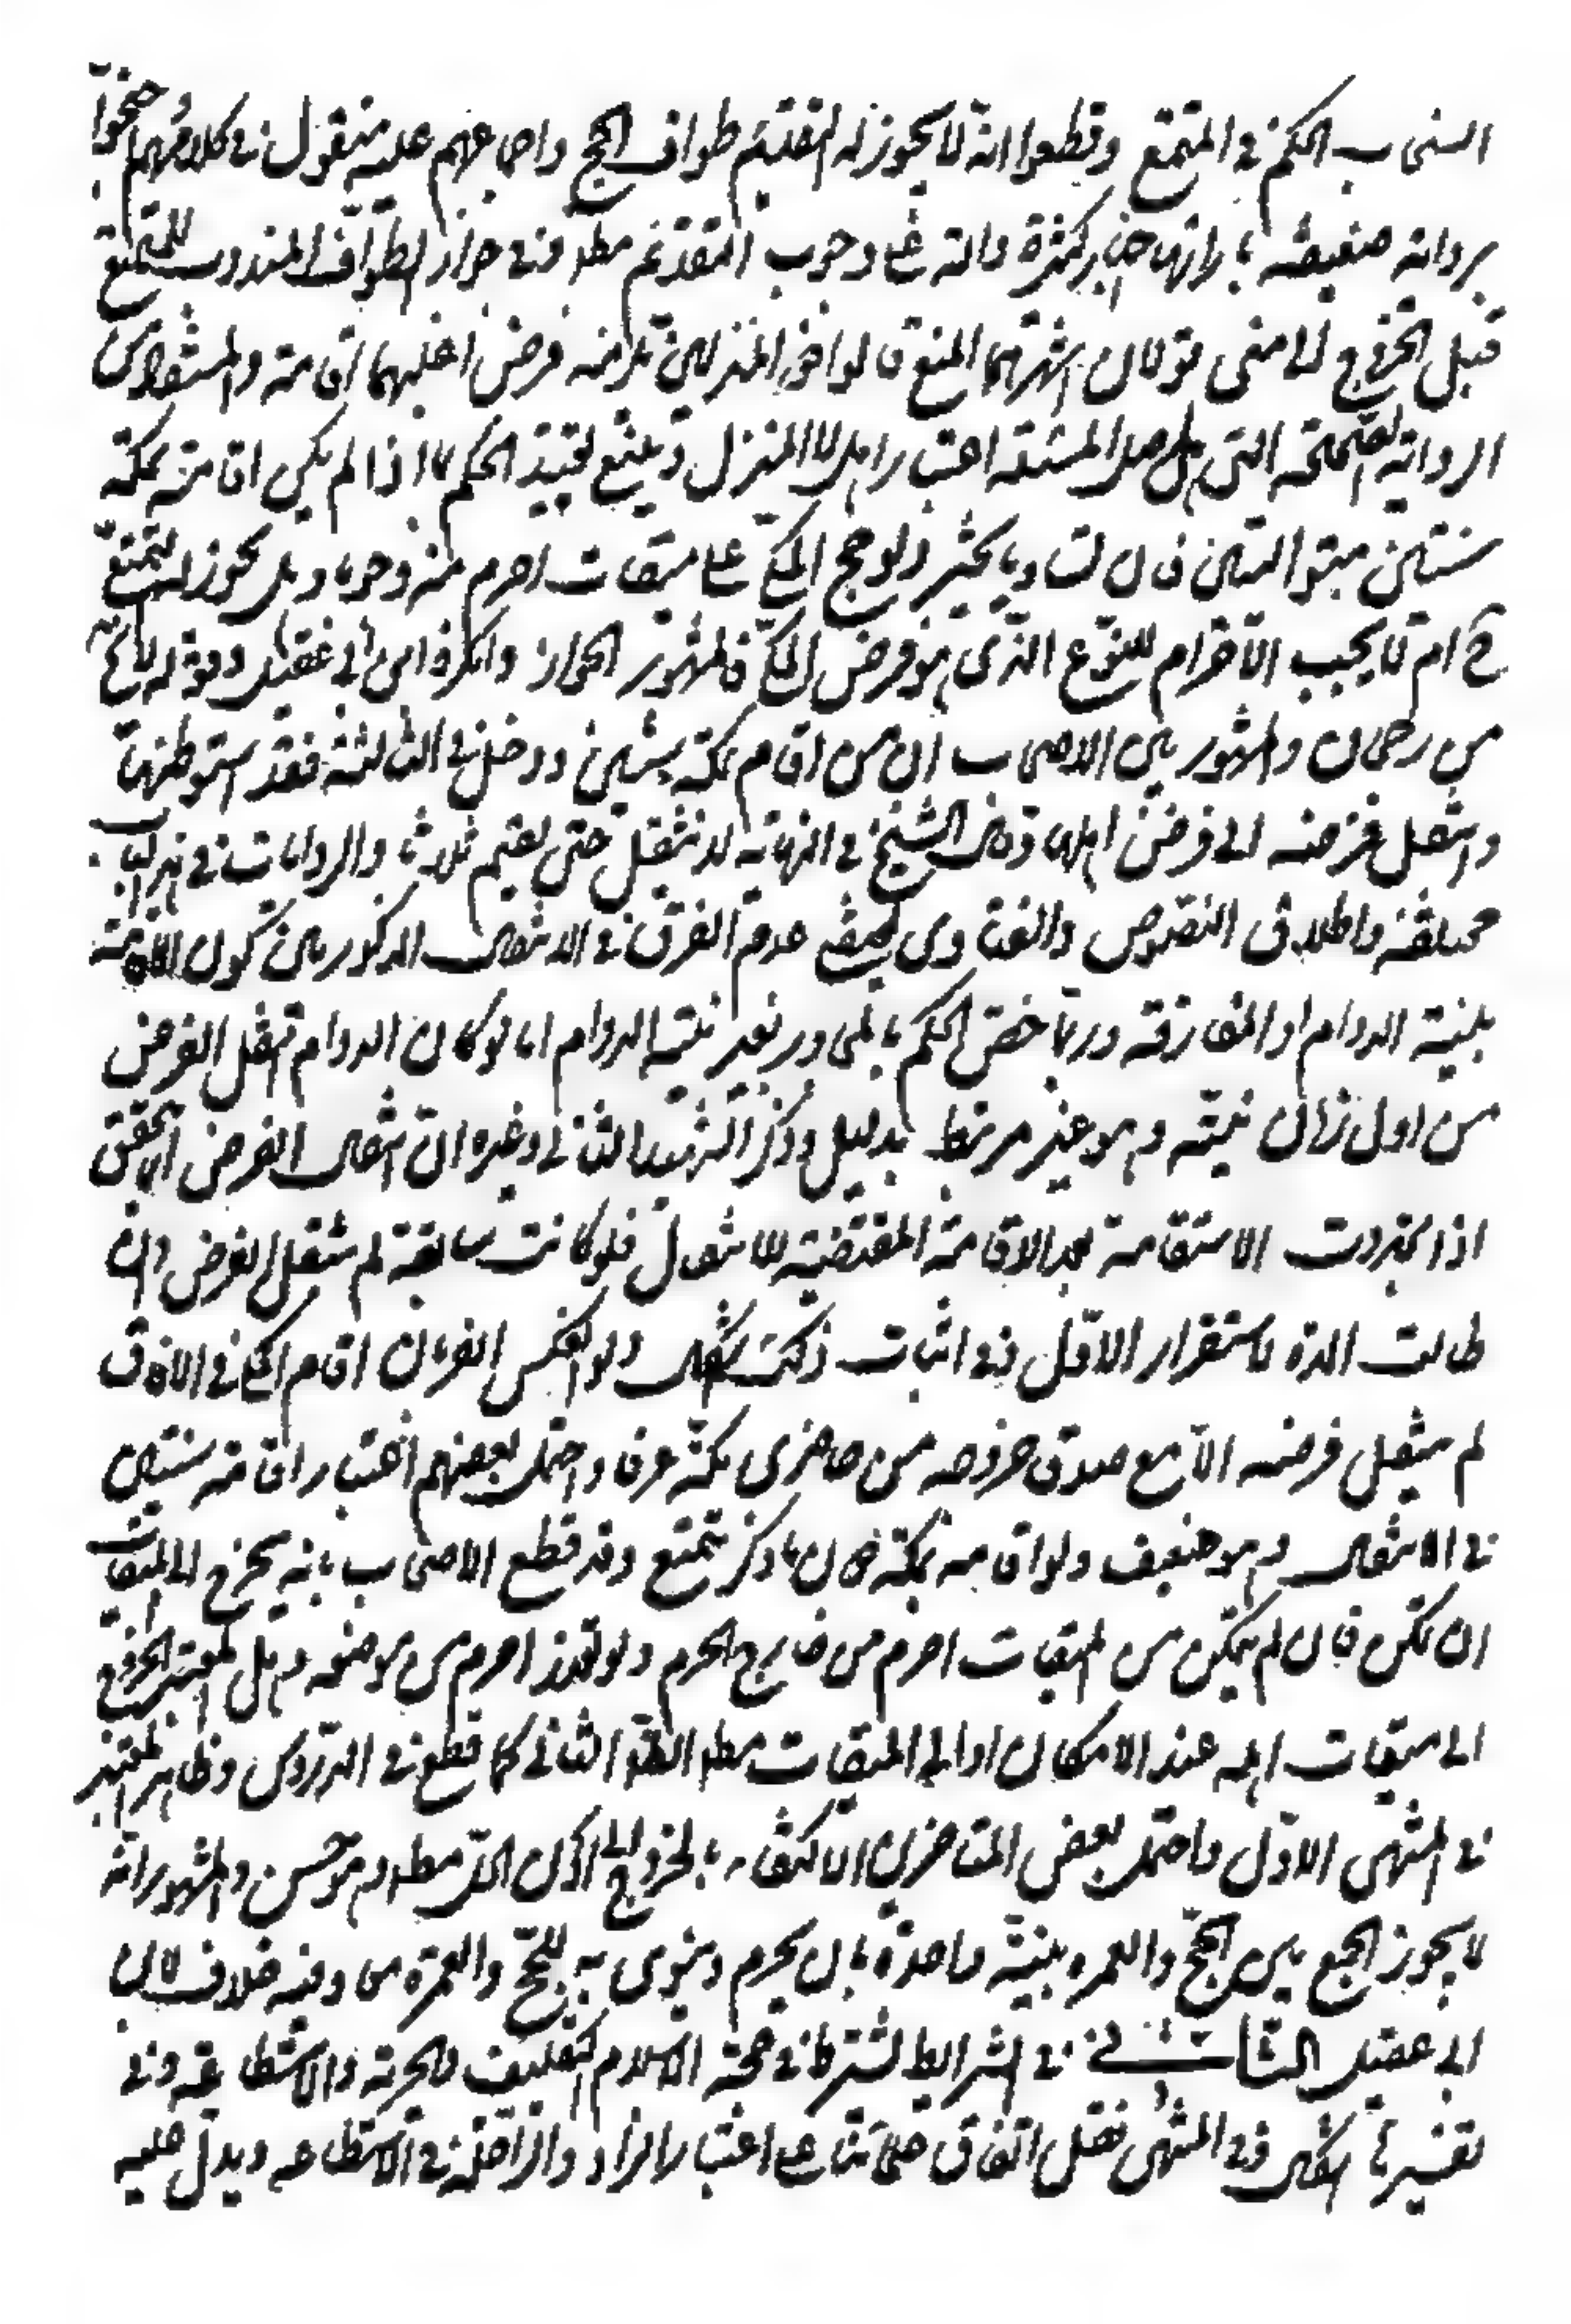 الحكم في المتمتع وقطعوا انه لا يجوز له التقديم طواف الحج واجماعهم عليه منقول في كلامهم احتجوا
برواية ضعيفة بازائها اخبار كثيرة دالة على وجوب التقديم مط وفي جواز الطواف المندوب للمتمتع
قبل الخروج الى منى قولان اشهرهما المنع فالو المنزلين يلزمه فرض اغلبهما اقامة والمستفاد من
الرواية الصحيحة التي هي اصل المسئلة اعتبار الاهل لا المنزل وينبغي تقييد الحكم بما اذا لم يكن اقامته بمكة
سنتين متواليتين فان تساويا تخير ولو حج المكي على ميقات احرم منه وجوبا وهل يجوز له التمتع
ح ام لا يجب الاحرام للنوع الذي هو فرض المكي فالمشهور الجواز وانكره ابن ابي عقيل وقوله لا يخ
من رجحان والمشهور بين الاصحاب ان من اقام بمكة سنتين ودخل في الثالثة فقد استوطنها
وانتقل فرضه الى فرض اهلها وقال الشيخ في النهاية لا ينتقل حتى يقيم ثلاثا والروايات في هذا الباب
مختلفة واطلاق النصوص والفتاوى يقتضي عدم الفرق في الانتقال المذكور بين كون الاقامة
بنية الدوام او المفارقة وربما خص الحكم بالمجاور بغير نية الدوام اما لو كان الدوام انتقل الفرض
من اول زمان نيته وهو غير مرتبط بدليل وذكر الشهيد الثاني وغيره ان انتقال الفرض انما يتحقق
اذا تجددت الاستقامة بعد الاقامة المقتضية للانتقال فلو كانت سابقة لم ينتقل الفرض وان
طالت المدة لاستقرار الاول وفي اثبات ذلك اشكال ولو انعكس الفرض بان اقام المكي في الافاق
لم ينتقل فرضه الا مع صدق خروجه من حاضري مكة عرفا واحتمل بعضهم اعتبار اقامة سنتين
في الانتقال وهو ضعيف ولو اقامه بمكة دون ما ذكر تمتع وقد قطع الاصحاب بانه يخرج الى الميقات
ان تمكن فان لم يتمكن من الميقات احرم من خارج الحرم ولو تعذر احرم من موضعه وهل المعتبر الخروج
الى ميقات اهله عند الامكان او الى الميقات مطلقا الثاني كما قطع في الدروس وظاهر المعتبر
في المنتهى الاول واحتمل بعض المتاخرين الاكتفاء بالخروج الى ادنى الحل مطلقا وهو حسن والمشهور انه
لا يجوز الجمع بين الحج والعمرة بنية واحدة بان يحرم وينوي به للحج والعمرة معا وفيه خلاف لابن
ابي عقيل الثاني في الشرائط يشترط في حجة الاسلام التكليف والحرية والاستطاعة وفي
تفسيرها اشكال وفي المنتهى نقل اتفاق علمائنا على اعتبار الزاد والراحلة في الاستطاعة ويدل عليه